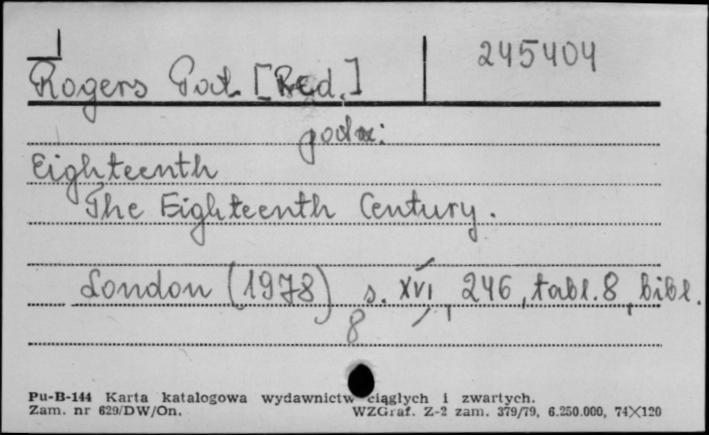 245404
Rogers Pat [Red.]
podz:
Eighteenth
The Eighteenth Century.
London (1978) s. XVI, 246, tabl. 8, bibl.
8
Pu-B-144 Karta katalogowa wydawnictw ciągłych i zwartych.
Zam. nr 629/DW/On. WZGraf. Z-2 zam. 379/79, 6.250.000, 74X120